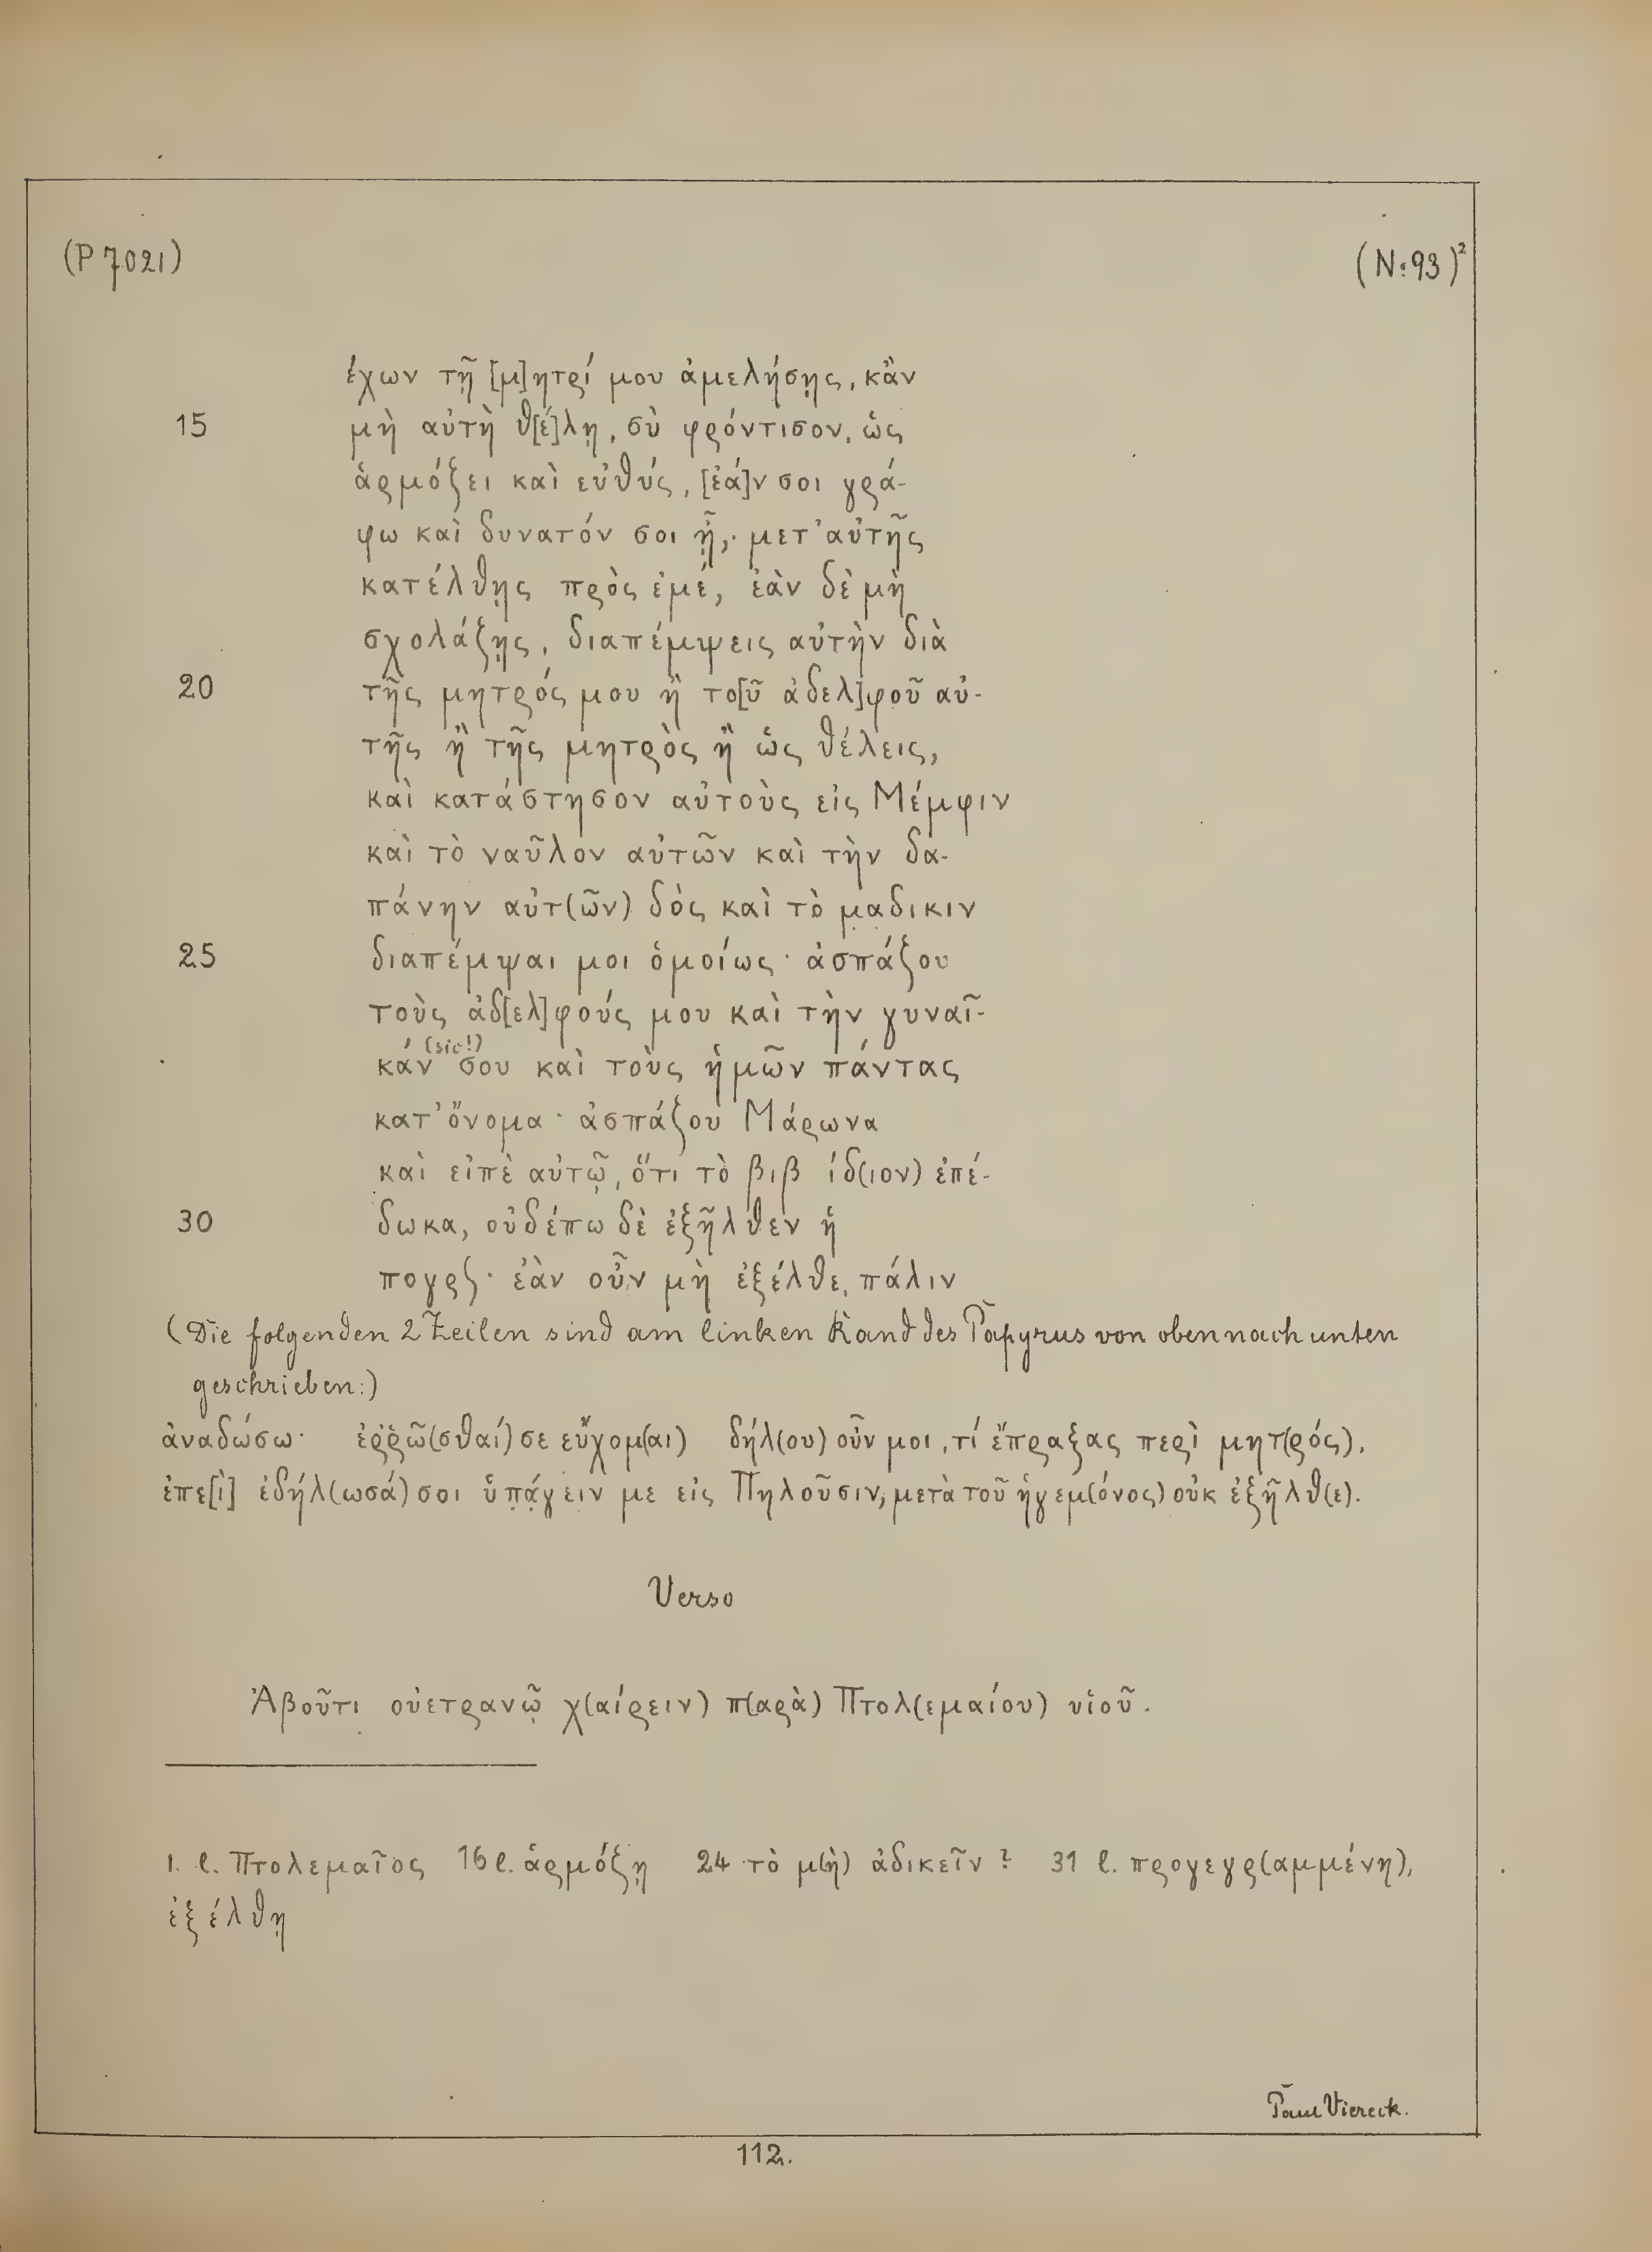 (P 7021)
(N:93)²
ἔχων τῇ [μ]ητρί μου ἀμελήσῃς, κἂν
15 μὴ αὐτὴ θ[έ]λῃ, σὺ φρόντισον, ὡς
ἁρμόζει καὶ εὐθύς, [ἐά]ν σοι γρά-
φω καὶ δυνατόν σοι ᾖ, μετ' αὐτῆς
κατέλθῃς πρὸς ἐμέ, ἐὰν δὲ μὴ
σχολάζῃς, διαπέμψεις αὐτὴν διὰ
20 τῆς μητρός μου ἢ το[ῦ ἀδελ]φοῦ αὐ-
τῆς ἢ τῆς μητρὸς ἢ ὡς θέλεις,
καὶ κατάστησον αὐτοὺς εἰς Μέμφιν
καὶ τὸ ναῦλον αὐτῶν καὶ τὴν δα-
πάνην αὐτ(ῶν) δὸς καὶ τὸ μ̣αδικιν
25 διαπέμψαι μοι ὁμοίως· ἀσπάζου
τοὺς ἀδ[ελ]φούς μου καὶ τὴν γυναῖ-
κάν (sic!) σου καὶ τοὺς ἡμῶν πάντας
κατ' ὄνομα· ἀσπάζου Μάρωνα
καὶ εἰπὲ αὐτῷ, ὅτι τὸ βιβ ίδ(ιον) ἐπέ-
30 δωκα, οὐδέπω δὲ ἐξῆλθεν ἡ
πογρς· ἐὰν οὖν μὴ ἐξέλθε, πάλιν
(Die folgenden 2 Zeilen sind am linken Rand des Papyrus von oben nach unten
geschrieben:)
ἀναδώσω· ἐρρῶ(σθαί) σε εὔχομ(αι) δήλ(ου) οὖν μοι, τί ἔπραξας περὶ μητ(ρός),
ἐπε[ὶ] ἐδήλ(ωσά) σοι ὑπ̣ά̣γειν με εἰς Πηλοῦσιν, μετὰ τοῦ ἡγεμ(όνος) οὐκ ἐξῆλθ(ε).
Verso
Ἀβοῦτι οὐετρανῷ χ(αίρειν) π(αρὰ) Πτολ(εμαίου) υἱοῦ.
1. l. Πτολεμαῖος 16 l. ἁρμόζῃ 24 τὸ μ(ὴ) ἀδικεῖν? 31 l. προγεγρ(αμμένη),
ἐξέλθῃ
Paul Viereck.
112.